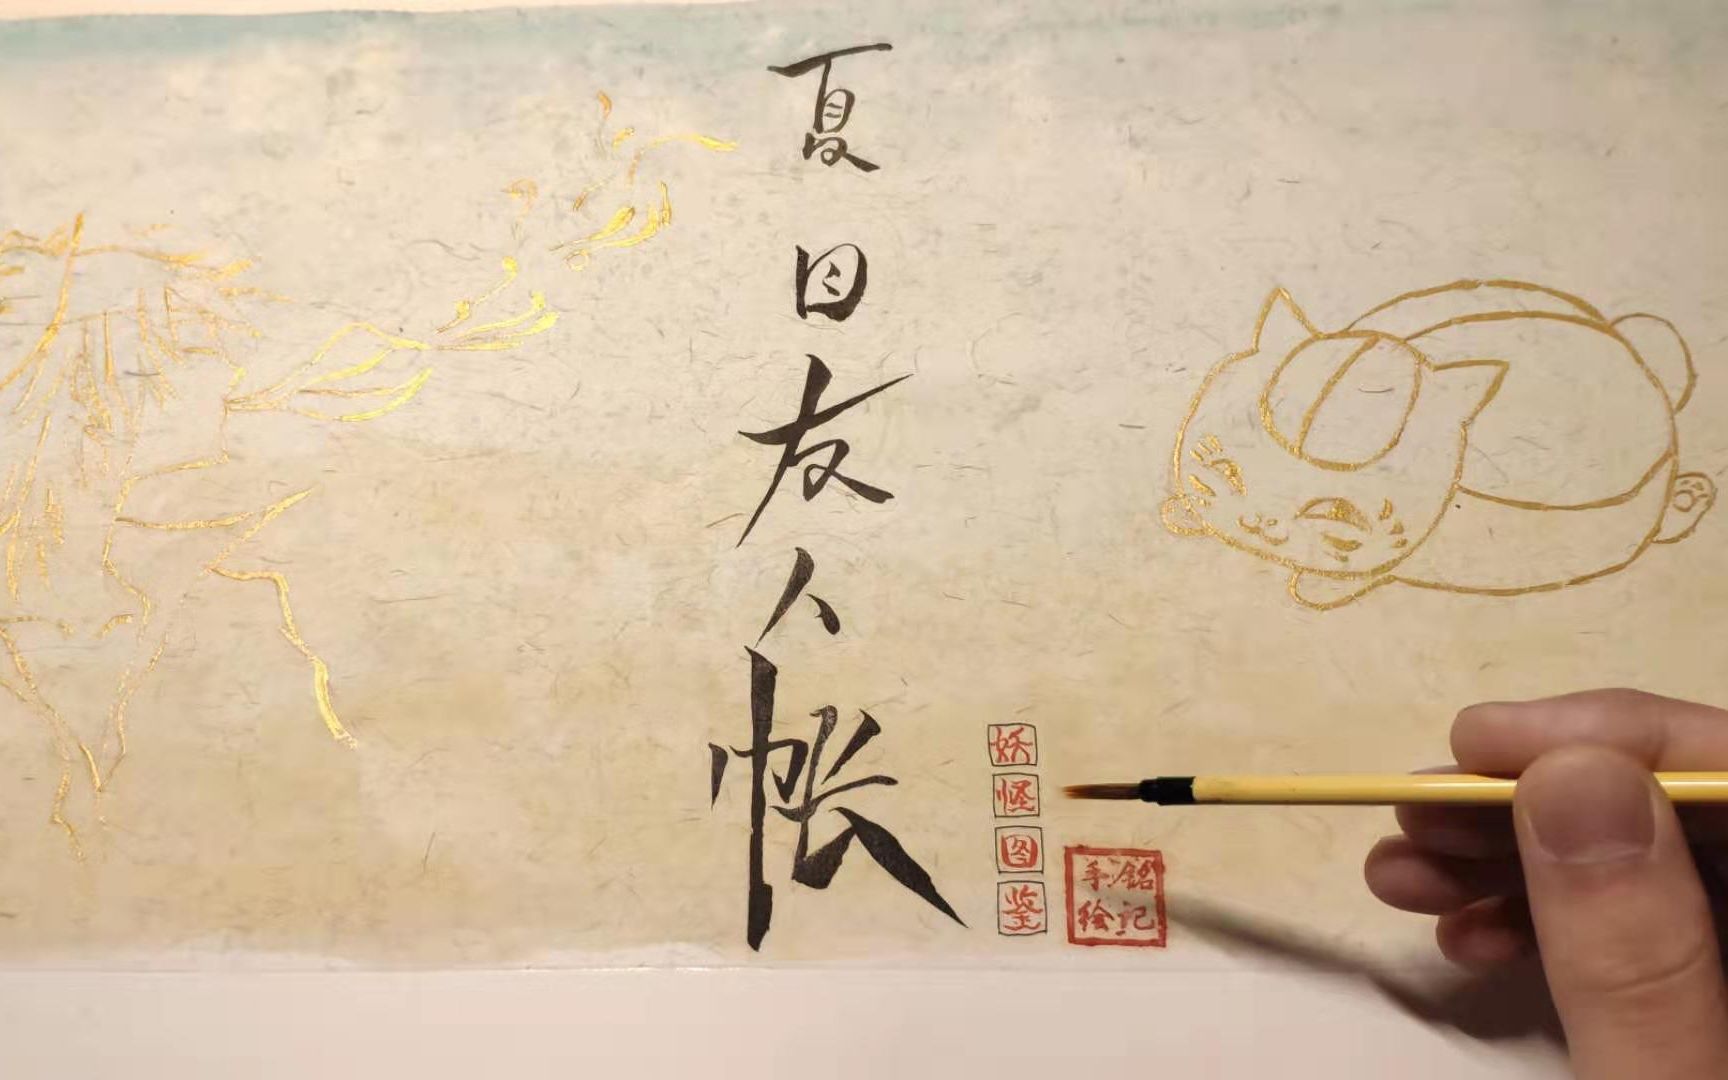 夏目友人帐
妖怪图鉴
铭记
手绘